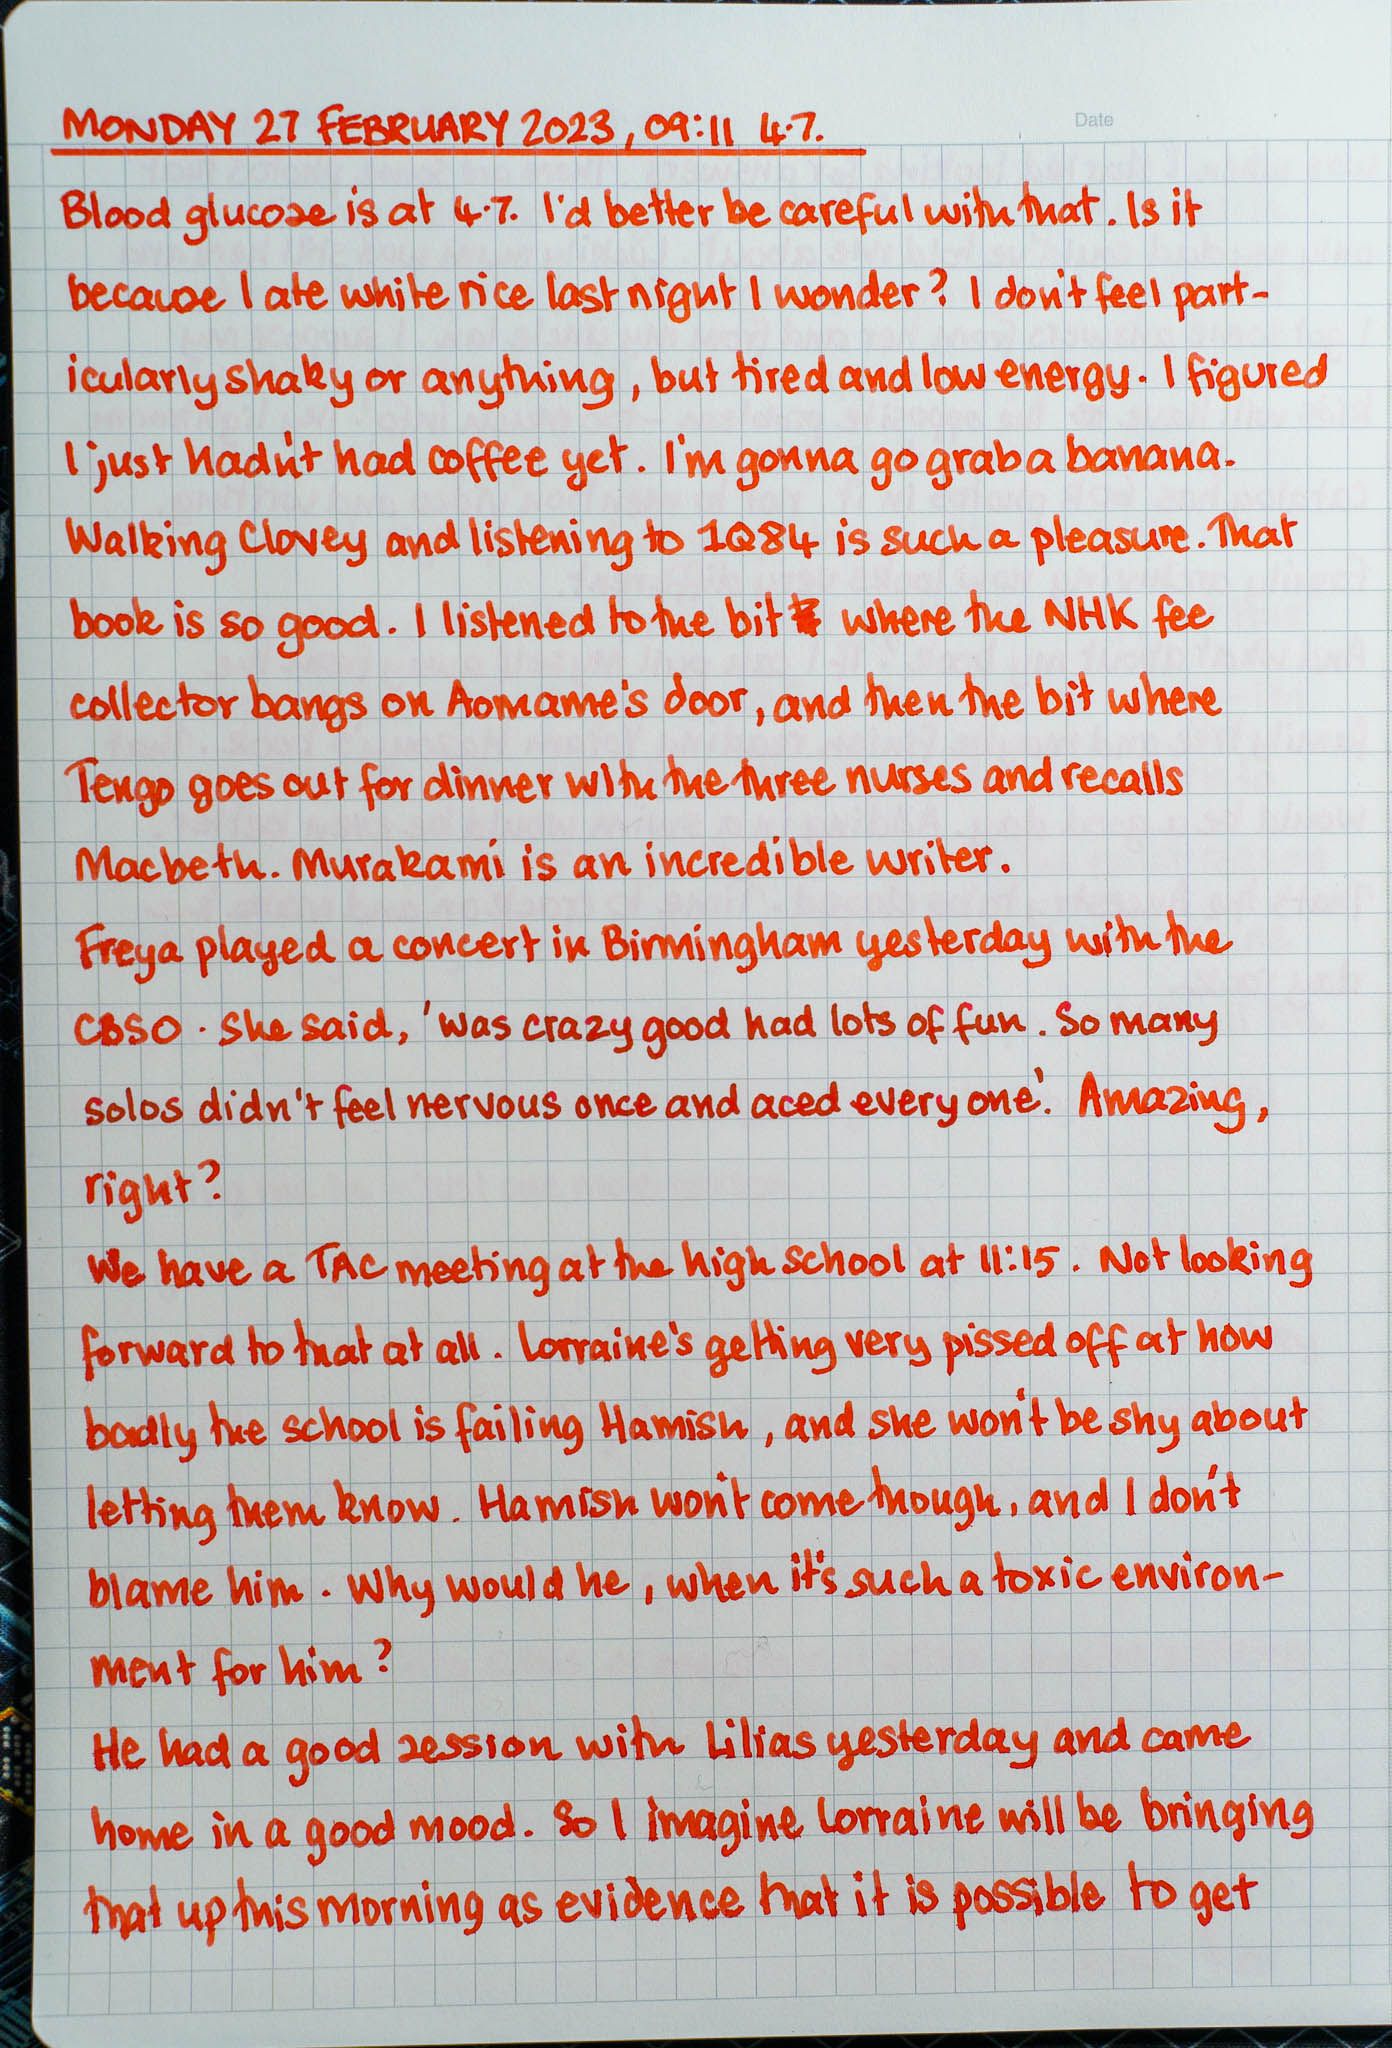 MONDAY 27 FEBRUARY 2023, 09:11 4.7.
Date
Blood glucose is at 4.7. I'd better be careful with that. Is it
because I ate white rice last night I wonder? I don't feel part-
icularly shaky or anything, but tired and low energy. I figured
I just hadn't had coffee yet. I'm gonna go grab a banana.
Walking Clovey and listening to 1Q84 is such a pleasure. That
book is so good. I listened to the bit where the NHK fee
collector bangs on Aomame's door, and then the bit where
Tengo goes out for dinner with the three nurses and recalls
Macbeth. Murakami is an incredible writer.
Freya played a concert in Birmingham yesterday with the
CBSO. She said, 'was crazy good had lots of fun. So many
solos didn't feel nervous once and aced every one'. Amazing,
right?
We have a TAC meeting at the high school at 11:15. Not looking
forward to that at all. Lorraine's getting very pissed off at how
badly the school is failing Hamish, and she won't be shy about
letting them know. Hamish won't come though, and I don't
blame him. Why would he, when it's such a toxic environ-
ment for him?
He had a good session with Lilias yesterday and came
home in a good mood. So I imagine Lorraine will be bringing
that up this morning as evidence that it is possible to get